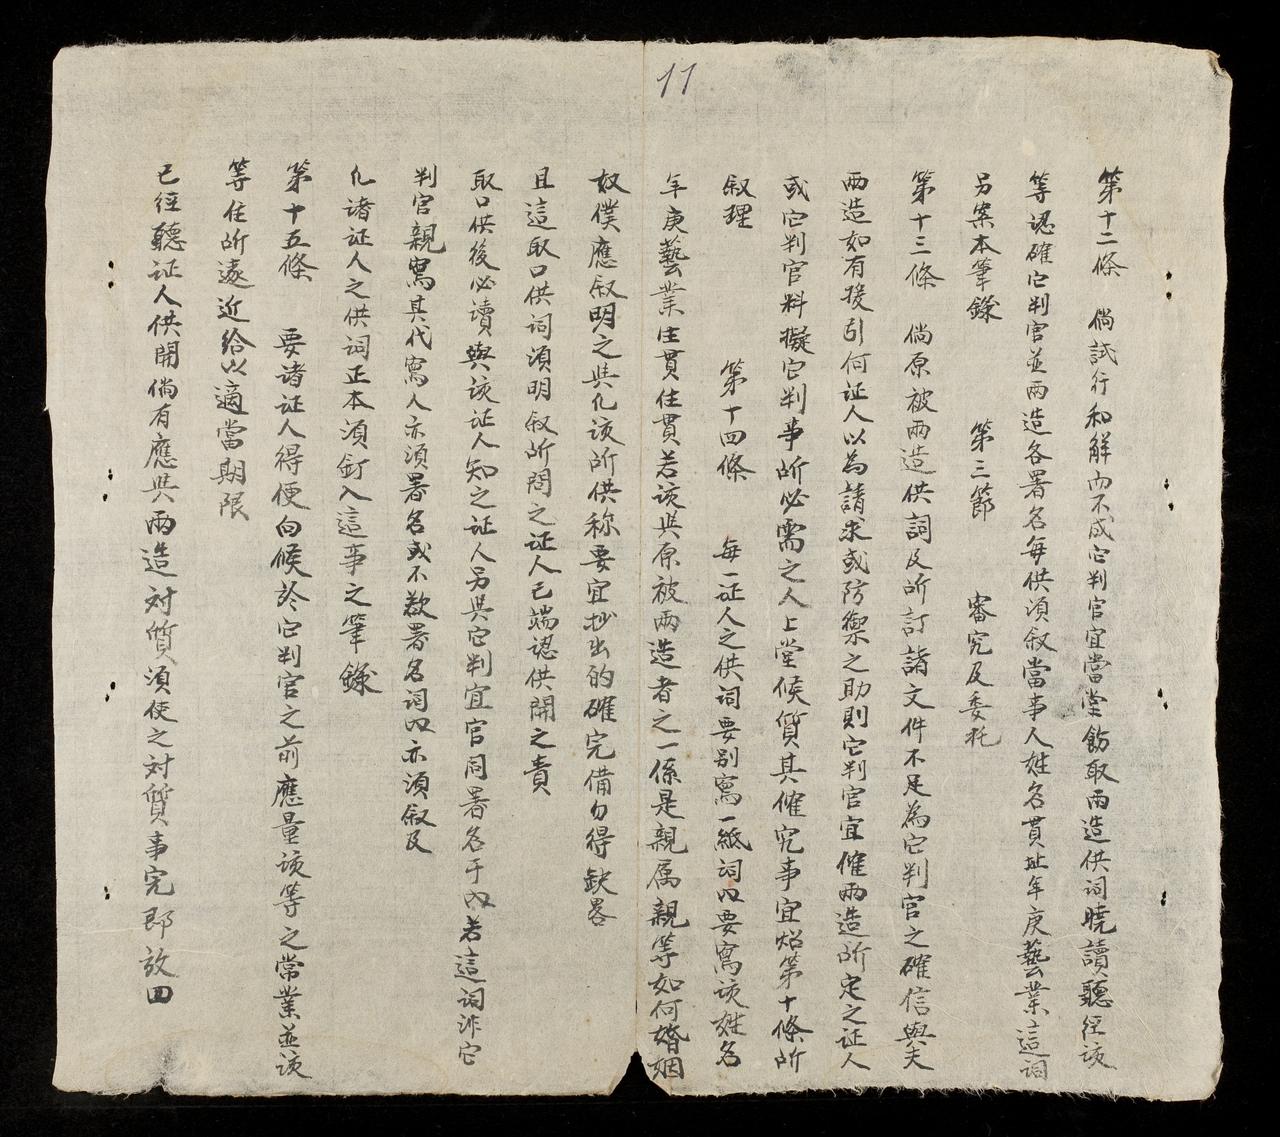 11
第十二條　倘試行和解而不成它判官宜當堂飭取両造供詞曉讀聽経该
等認確它判官並両造各署名每供湏叙當事人姓名貫址年庚藝業這詞
另案本筆錄　第三節　審究及委托
第十三條　倘原被両造供詞及所訂諸文件不足為它判官之確信與夫
両造如有援引何证人以為請求或防禦之助則它判官宜催両造所定之证人
或它判官料擬它判事所必需之人上堂候質其催究事宜炤第十條所
叙理　第十四條　每一证人之供词要別寫一紙詞内要寫该姓名
年庚藝業生貫住貫若该與原被両造者之一係是親属親等如何婚姻
奴僕應叙明之與凡该所供称要宜抄出的確完備勿得缺畧
且這取口供詞湏明叙所問之证人已端認供開之責
取口供後必讀與该证人知之证人另與它判宜官同署名于内若這詞非它
判官親寫其代寫人亦湏署名或不欲署名詞内亦湏叙及
凡诸证人之供詞正本湏釘入這事之筆錄
第十五條　要诸证人得便向候於它判官之前應量该等之常業並该
等住所遠近给以適當期限
已経聽证人供開倘有應與両造対質湏使之対質事完即放回